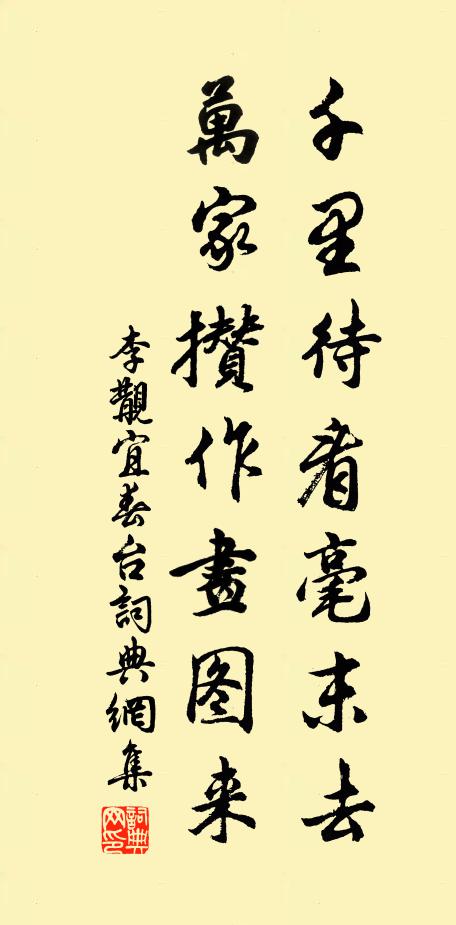 千里待看毫末去
萬家攢作畫图来
李觀宜春台詞典網集
詞典網印